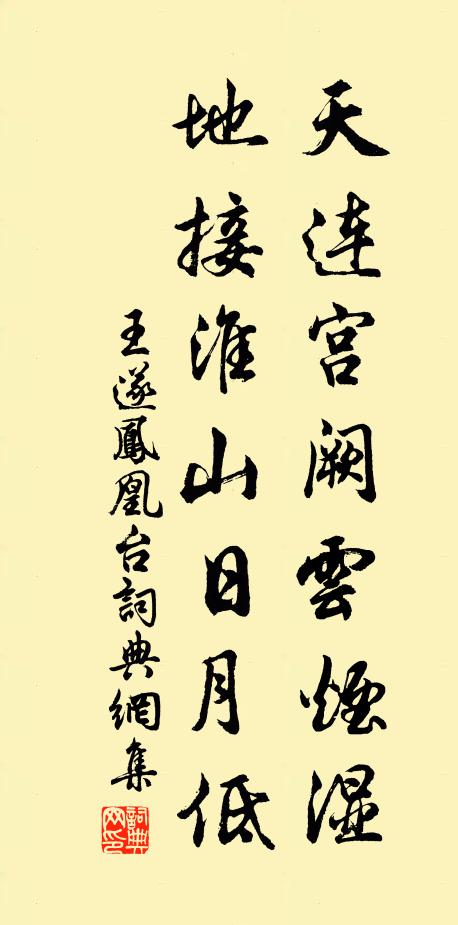 天連宫阙雲煙湿
地接淮山日月低
王遂鳳凰台詞典網集
詞典網印